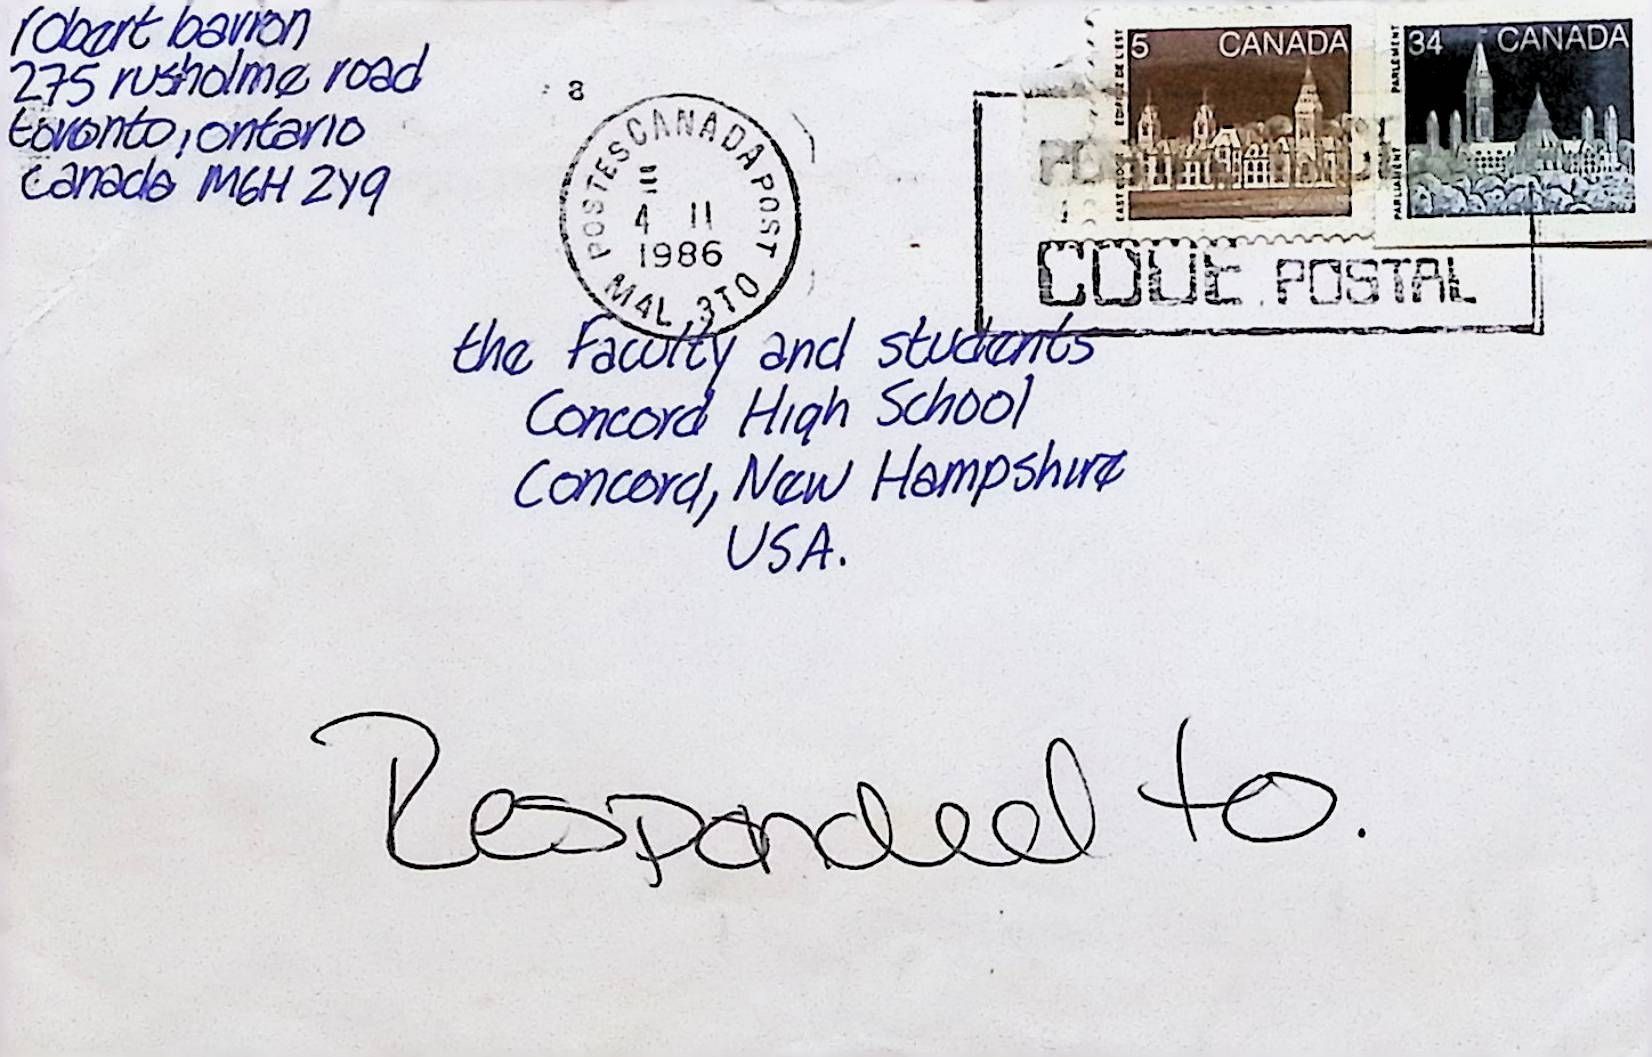 robert barron
275 rusholme road
toronto, ontario
Canada M6H 2Y9
8
POSTES CANADA POST
4 II
1986
M4L 3T0
5 CANADA
EAST BLOCK ÉDIFICE DE L'EST
34 CANADA
PARLIAMENT PARLEMENT
CODE POSTAL
the Faculty and students
Concord High School
Concord, New Hampshire
USA.
Responded to.